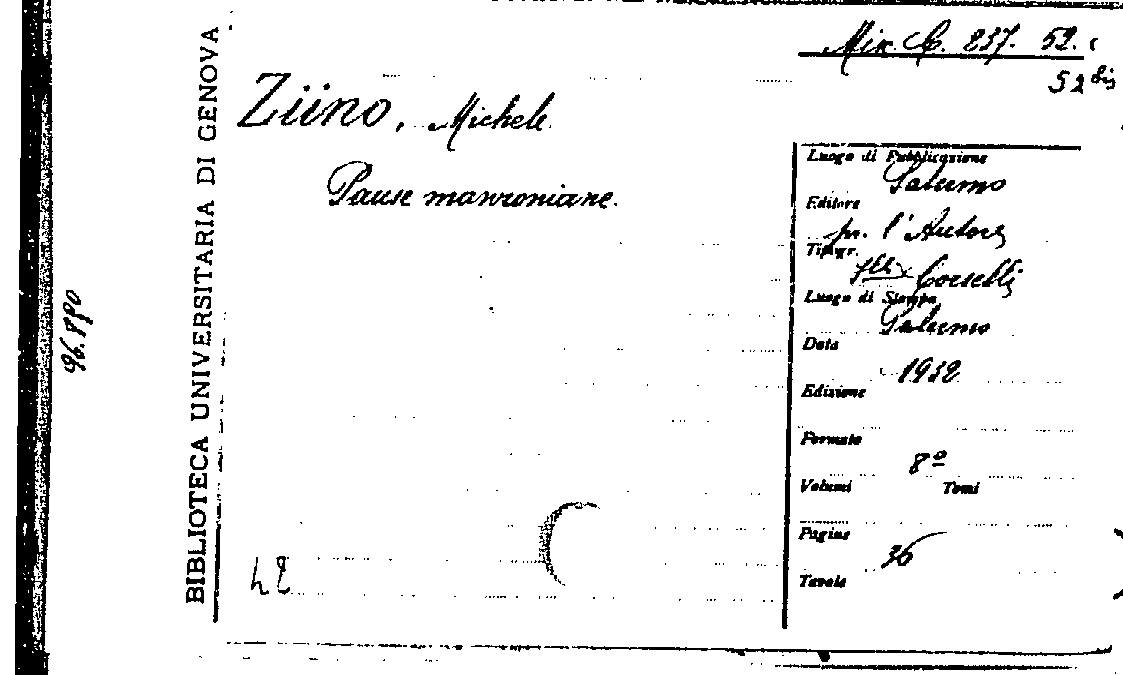 BIBLIOTECA UNIVERSITARIA DI GENOVA
96.890
Mis. C. 237. 52.
52 bis
Ziino, Michele.
Pause marroniane.
Luogo di Pubblicazione
Palermo
Editore
pr. l'Autore
Tipogr.
flli Corselli
Luogo di Stampa
Palermo
Data
1932
Edizione
Formato
8º
Volumi
Tomi
Pagine
36
Tavole